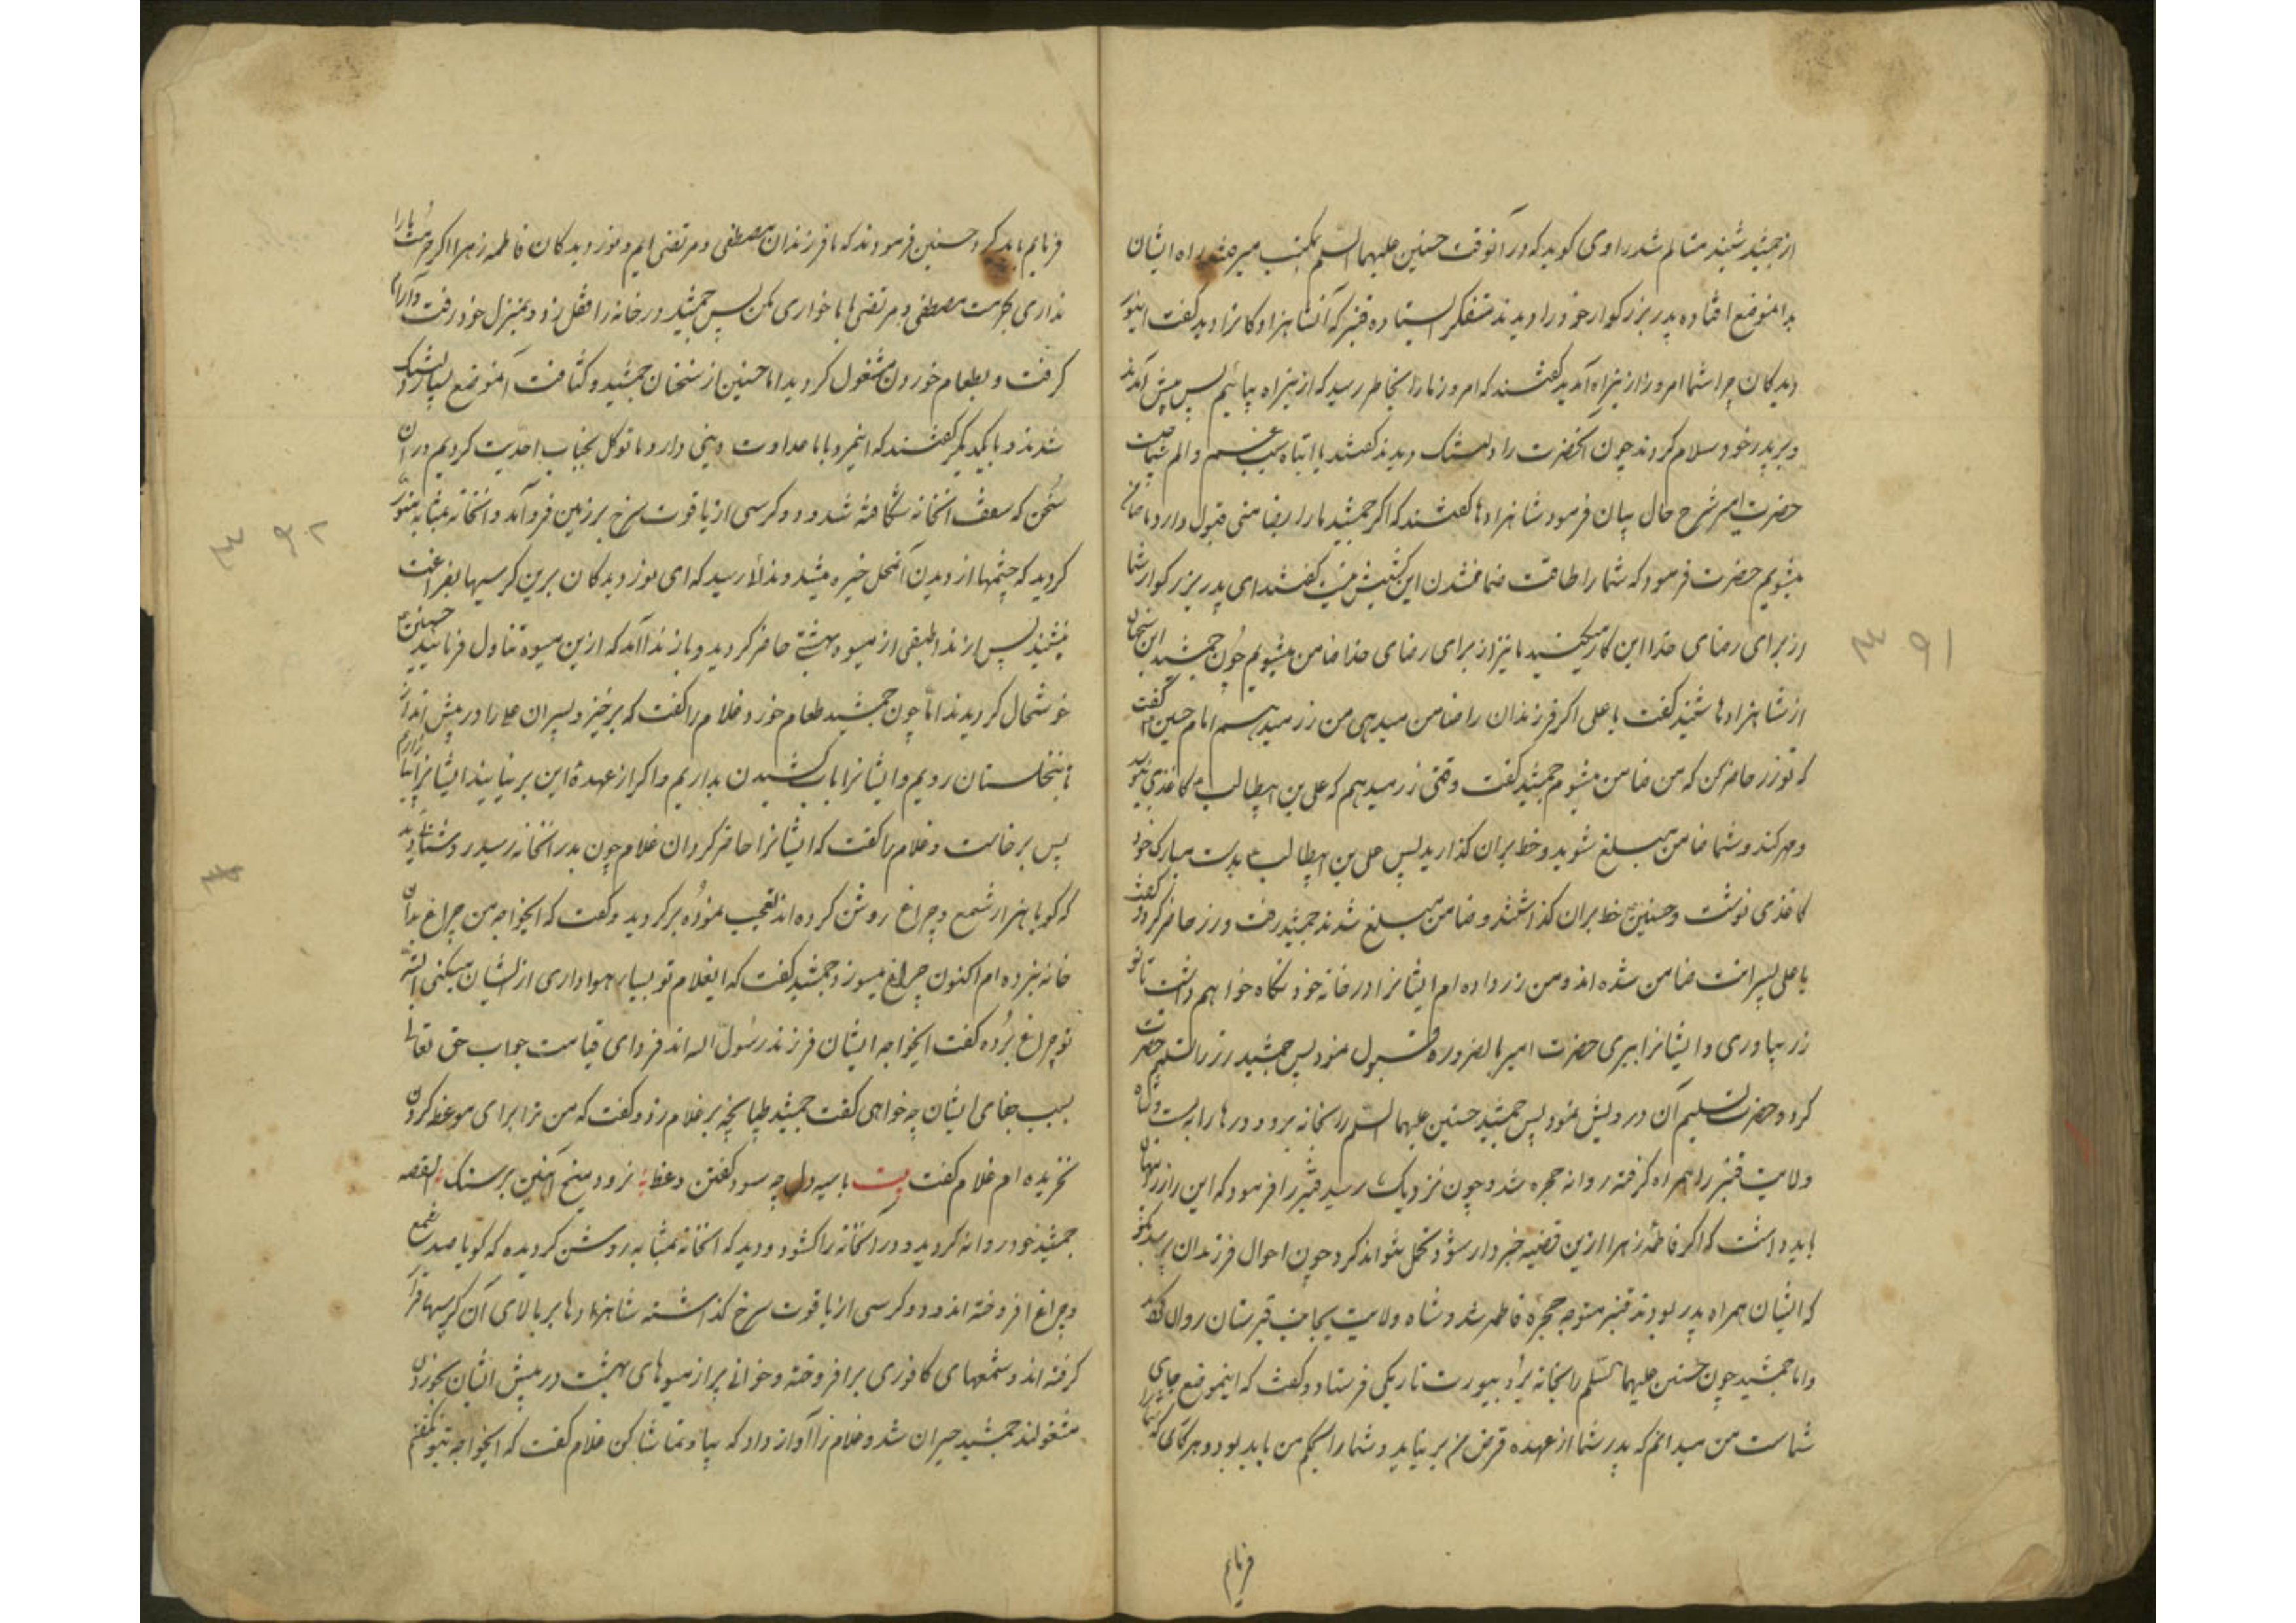 از جمشید شنید متألم شد راوی کوید که در آنوقت حسنین علیهما السلم بمکتب میرفتند راه ایشان
بدانموضع افتاده پدر بزرکوار خود را دیدند متفکر ایستاده قنبر که آنشاهزادکانرا دید کفت اینور
دیدکان چرا شما امروز از اینراه آمدید کفتند که امروز ما را بخاطر رسید که از اینراه بیائیم پس پیش آمدند
و بر پدر خود سلام کردند چون آنحضرت را دلتنک دیدند کفتند یا ابتاه سبب غم و الم شما چیست
حضرت امیر شرح حال بیان فرمود شاهزادها کفتند که اکر جمشید ما را بضامنی قبول دارد ما ضامن
میشویم حضرت فرمود که شما را طاقت ضامن شدن این کشیش نیست کفتند ای پدر بزرکوار شما
از برای رضای خدا این کار میکنید ما نیز از برای رضای خدا ضامن میشویم چون جمشید این سخنان
از شاهزادها شنید کفت یا علی اکر فرزندان را ضامن میدهی من زر میدهم امام حسین کفت
که تو زر حاضر کن که من ضامن میشوم جمشید کفت وقتی زر میدهم که علی بن ابیطالب کاغذی بنویسد
و مهر کند و شما ضامن مبلغ شوید و خط بران کذارید پس علی بن ابیطالب بدست مبارک خود
کاغذی نوشت و حسنین خط بران کذاشتند و ضامن مبلغ شدند جمشید رفت و زر حاضر کرد و کفت
یا علی پسرانت ضامن شده اند و من زر داده ام ایشانرا در خانه خود نکاه خواهم داشت تا تو
زر بیاوری و ایشانرا ببری حضرت امیر بالضروره قبول نمود پس جمشید زر را تسلیم حضرت
کرد و حضرت تسلیم آن درویش نمود پس جمشید حسنین علیهما السلم را بخانه برد و درها را بست و شاه
ولایت قنبر را همراه کرفته روانه حجره شد و چون نزدیک رسید قنبر را فرمود که این راز را پنهان
باید داشت که اکر فاطمه زهرا ازین قضیه خبردار شود تحمل نتواند کرد چون احوال فرزندان پرسد بکو
که ایشان همراه پدر بودند قنبر متوجه حجره فاطمه شد و شاه ولایت بجانب قبرستان روان شد
و اما جمشید چون حسنین علیهما السلم را بخانه برد بصورت تاریکی فرستاد و کفت که اینموضع جای
شماست من میدانم که پدر شما از عهده قرض من برنیاید و شما را بحکم من باید بود و هر کاری که شما را
فرمایم
فرمایم باید کرد حسنین فرمودند که ما فرزندان مصطفی و مرتضی ایم و نور دیدکان فاطمه زهرا اکر حرمت ما را
نداری بحرمت مصطفی و مرتضی ما را خواری مکن پس جمشید در خانه را قفل زد و بمنزل خود رفت و آرام
کرفت و بطعام خوردن مشغول کردید اما حسنین از سخنان جمشید و کثافت آنموضع بسیار دلتنک
شدند و با یکدیکر کفتند که اینمرد با ما عداوت دینی دارد ما توکل بجناب احدیت کردیم در این
سخن که سقف انخانه شکافته شد و دو کرسی از یاقوت سرخ بر زمین فرو آمد و انخانه بمثابه منور
کردید که چشمها از دیدن آنمحل خیره میشد و ندا رسید که ای نور دیدکان برین کرسیها بفراغت
بنشینید پس از ندا طبقی از میوه بهشتی حاضر کردید و باز ندا آمد که ازین میوه تناول فرمائید حسنین
خوشحال کردیدند اما چون جمشید طعام خورد غلام را کفت که برخیز و پسران علی را در پیش انداز
تا بنخلستان رویم و ایشانرا باب کشیدن بداریم و اکر از عهده این برنیایند ایشانرا بیازارم
پس برخاست و غلام را کفت که ایشانرا حاضر کردان غلام چون بدر انخانه رسید روشنائی دید
که کویا هزار شمع و چراغ روشن کرده اند تعجب نموده برکردید و کفت که ایخواجه من چراغ بدان
خانه نبرده ام اکنون چراغ میسوزد جمشید کفت که ایغلام تو بسیار هواداری از ایشان میکنی البته
تو چراغ برده کفت ایخواجه ایشان فرزند رسول اله اند فردای قیامت جواب حق تعالی
بسبب جفای ایشان چه خواهی کفت جمشید طپانچه بر غلام زد و کفت که من ترا برای موعظه کردن
نخریده ام غلام کفت بیت با سیه دل چه سود کفتن وعظ نرود میخ اهنین بر سنک القصه
جمشید خود روانه کردید و در انخانه را کشود و دید که انخانه بمثابه روشن کردیده که کویا صد شمع
و چراغ افروخته اند و دو کرسی از یاقوت سرخ کذاشته شاهزادها بر بالای آن کرسیها قرار
کرفته اند و شمعهای کافوری برافروخته و خوانی پر از میوهای بهشت در پیش ایشان بخوردن
مشغولند جمشید حیران شد و غلام را آواز داد که بیا و تماشا کن غلام کفت که ایخواجه بتو نکفتم
۹۱
۹۲